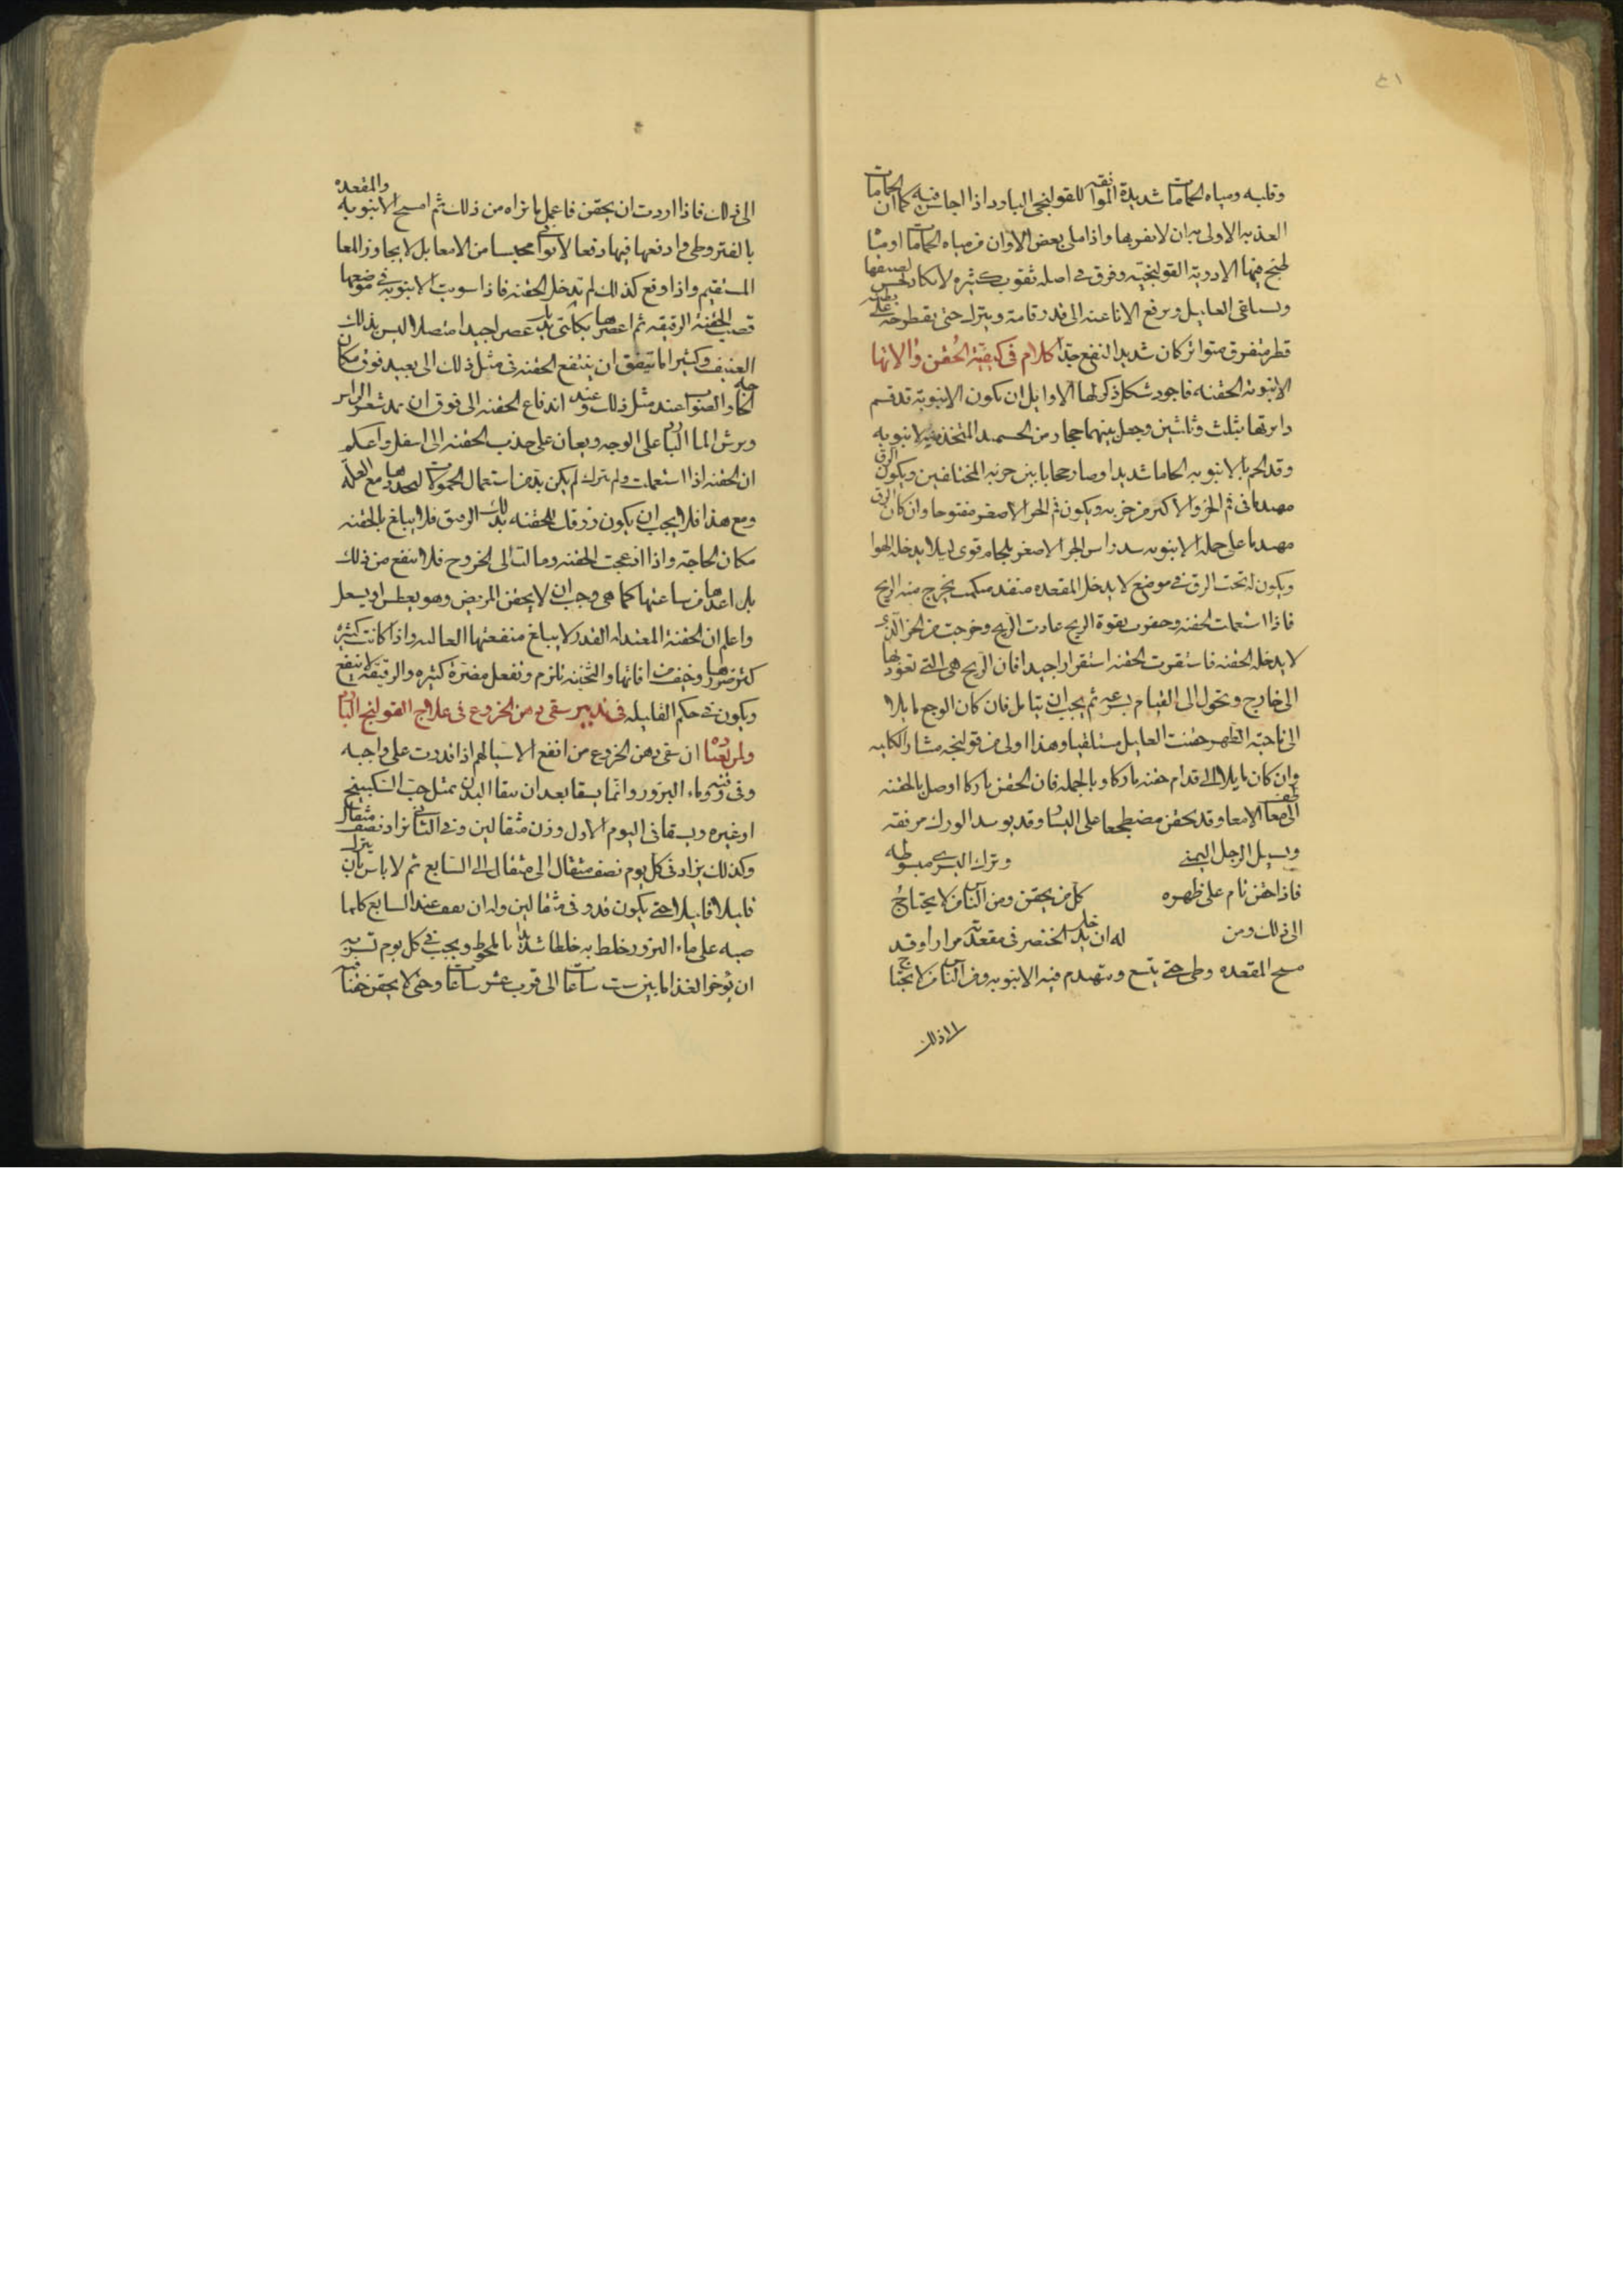 ٤١
وقلبه ومياه الحمامات شديدة الموافقة للقولنج البارد اذا جلس فيه كما ان الحمامات
العذبه الاولى به ان لا يقربها واذا ملى بعض الاوان من مياه الحمامات او مما
طبخ فيها الادوية القولنجية وفرق فى اصله ثقوب كثيره لا تكاد تحس لضيقها
ويستلقى العليل ويرفع الانا عنه الى قدر قامة ويترك حتى يقطر على بطنه
قطر متفرق متواتر كان شديد النفع جدا كلام فى كيفية الحقن والاتها
الانبوبة الحقنه فاجود شكل ذكر لها الاوايل ان تكون الانبوبة قد قسم
دايرتها بثلث وثلثين وجعل بينهما حجاب من الجسد المتخذ منه الانبوبه
وقد الحم بالانبوبه الحاما شديدا وصار حجابا بين جزيه المختلفين ويكون الزق
مهندما فى فم الجزو الاكبر من جزيه ويكون فم الجزء الاصغر مفتوحا وان كان الزق
مهندما على جملة الانبوبه سد راس الجزء الاصغر بلحام قوى ليلا يدخله الهوا
ويكون له تحت الزق فى موضع لا يدخل المقعده منفذ يخرج منه الريح
فاذا استعملت الحقنه وحفزت بقوة الريح عادت الريح وخرجت من الجزء الذى
لا يدخله الحقنه فاستقرت الحقنه استقرارا جيدا فان الريح هى التى تعود بها
الى خارج وتحول الى القيام بسرعه ثم يجب ان يتامل فان كان الوجع مايلا
الى ناحية الظهر حقنت العليل مستلقيا وهذا اولى من قولنجه مشاركة الكليه
وان كان مايلا الى قدام حقنه باركا وبالجمله فان الحقن باركا اوصل بالحقنه
الى معاطف الامعا وقد يحقن مضطجعا على اليسار وقد يوسد الورك مرفقه
ويشيل الرجل اليمنى وترك اليسرى مبسوطه
فاذا حقن نام على ظهره كل من يحقن ومن الناس من لا يحتاج
الى ذلك ومن له ان يدخل الخنصر فى مقعدته مرارا وقد
مسح المقعده وطى حتى يتسع ويتهندم فيه الانبوبه ومن الناس من لا يحتاج
الى ذلك
الى ذلك فاذا اردت ان يحقن فاعمل ما تراه من ذلك ثم امسح الانبوبه والمقعده
بالقيروطى وادفعها فيها دفعا لا توافى محبسا من الامعا بل لا يجاوز المعا
المستقيم واذا وقع كذلك لم تدخل الحقنه فاذا سويت الانبوبه فى موضعها
فصب الحقنة الرقيقه ثم اعصرها بكلتى يديك عصرا جيدا متصلا ليس بذلك
العنيف وكثيرا ما يتفق ان يندفع الحقنه فى مثل ذلك الى بعيد فوق مكان
الحاجه والصواب عند مثل ذلك وعند اندفاع الحقنه الى فوق ان يمد شعر الراس
ويرش الما البارد على الوجه ويعان على جذب الحقنه الى اسفل واعلم
ان الحقنه اذا استعملت ولم تترك لم يكن بد من استعمال الحمولات لتحدرها مع العله
ومع هذا فلا يجب ان يكون زرقك للحقنه بذلك الرفق فلا يبلغ بالحقنه
مكان الحاجة واذا انزعجت الحقنه ومالت الى الخروج فلا انتفع من ذلك
بل اعدها من ساعتها كما هى وجب ان لا يحقن المريض وهو يعطس او يسعل
واعلم ان الحقنة المعتدله القدر لا يبلغ منفعتها العاليه واذا كانت كثيره
كثر ضررها وخيف من افاتها والثخينه تلزم وتفعل مضرة كثيره والرقيقه لا تنفع
ويكون فى حكم القليله فى تدبير سقى دهن الخروع فى علاج القولنج البارد
ولمن يعتاده ان سقى دهن الخروع من انفع الاشيا لهم اذا قدرت على واجبه
وفى وقته وماء البزور وانما يسقا بعد ان ينقا البدن بمثل حب السكبينج
او غيره ويسقا فى اليوم الاول وزن مثقالين وفى الثانى يزاد نصف مثقال
وكذلك يزاد فى كل يوم نصف مثقال الى مثقال الى السابع ثم لا باس بان يترك
قليلا قليلا حتى يكون قدر فى مثقالين وله ان يقف عند السابع كلما
صبه على ماء البزور خلط به خلطا شديدا بالمخوط ويجب فى كل يوم تشربه
ان يوخر الغذا ما بين ست ساعات الى قرب عشر ساعات وحتى لا يحقن